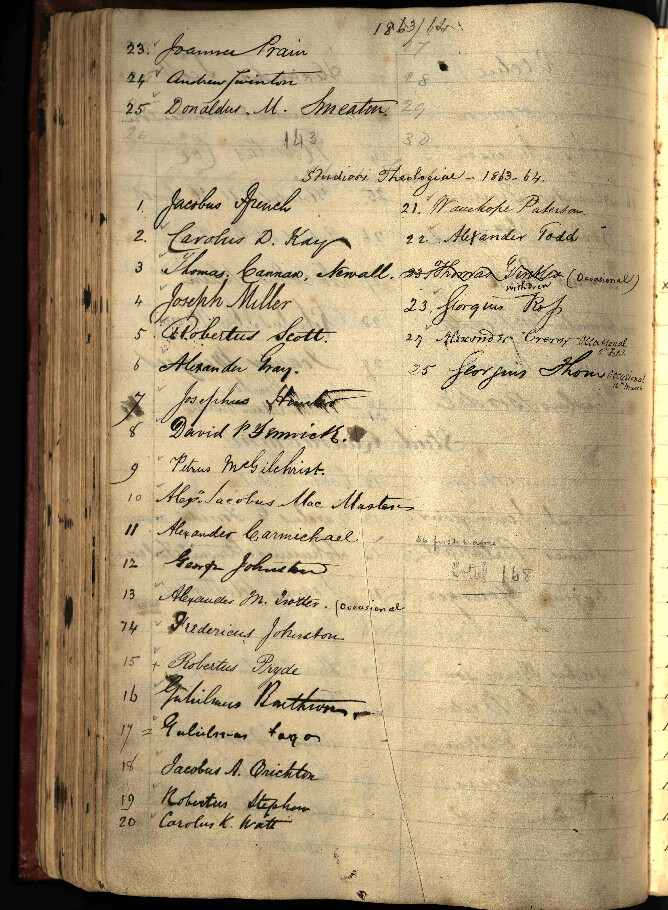 1863/64
23. Joannes Prain
24 Andrew Swinton
25 Donaldus. M. Smeaton
26
27
28
29
30
143
Studiosi Theologiae - 1863-64.
1. Jacobus French
2. Carolus D. Kay
3 Thomas. Cannan. Newall.
4 Joseph Miller
5 Robertus Scott.
6 Alexander Gray.
7 Josephus Hunter
8 David P. Fenwick.
9 Petrus McGilchrist.
10 Alexr. Jacobus Mac Master
11 Alexander Carmichael
12 George Johnston
13 Alexander M. Trotter. (Occasional
14 Fredericus Johnston
15 + Robertus Pryde
16 Gulielmus
17 = Gulielmus
18 Jacobus A. Crichton
19 Robertus Stephen
20 Carolus K. Watt
21. Wauchope Paterson
22. Alexander Todd
23 Thomas (Occasional)
withdrew
23. Georgius Ross
24 Alexander Creror Occasional
25 Georgius Thom Occasional
March
Total 168